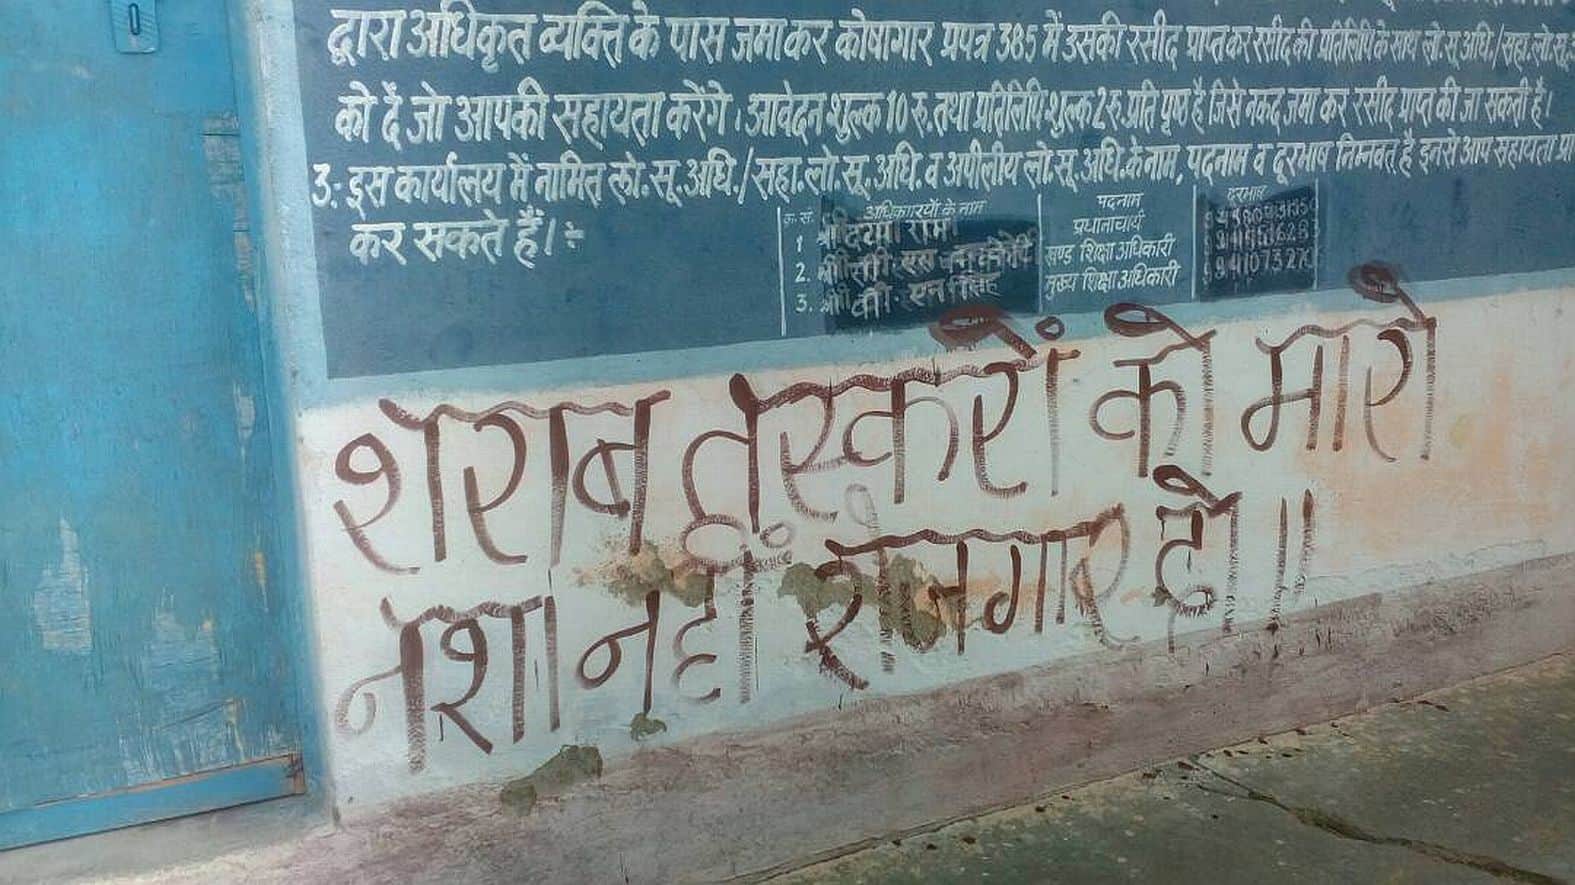 द्वारा अधिकृत व्यक्ति के पास जमा कर कोषागार प्रपत्र 385 में उसकी रसीद प्राप्त कर रसीद की प्रतिलिपि के साथ लो.सू.अधि./सहा.लो.सू.
को दें जो आपकी सहायता करेंगे। आवेदन शुल्क 10 रु. तथा प्रतिलिपि शुल्क 2 रु. प्रति पृष्ठ है जिसे नकद जमा कर रसीद प्राप्त की जा सकती है।
3:- इस कार्यालय में नामित लो.सू.अधि./सहा.लो.सू.अधि. व अपीलीय लो.सू.अधि. के नाम, पदनाम व दूरभाष निम्नवत है इनसे आप सहायता
कर सकते हैं।:-
क्र.सं. अधिकारियों के नाम पदनाम दूरभाष
1 श्री प्रधानाचार्य
2. श्री खण्ड शिक्षा अधिकारी
3. श्री एन सिंह मुख्य शिक्षा अधिकारी
शराब तस्करों को मारो
नशा नहीं रोजगार दो ॥